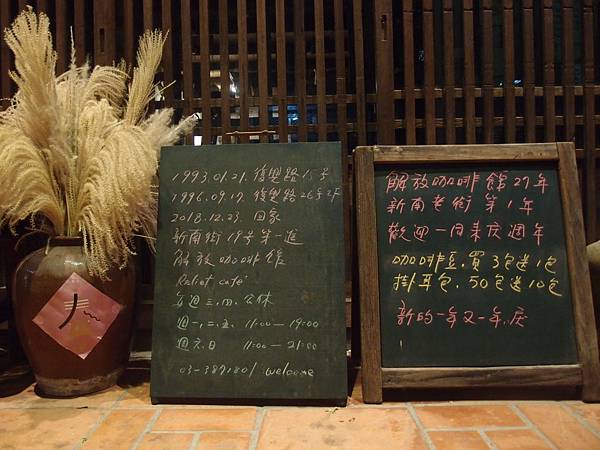 1993.01.21. 復興路15号
1996.09.17. 復興路26号3F
2018.12.23. 回家
新南街19号第一進
解放咖啡館
Relief café
每週三.四.公休
週一.二.五. 11:00—19:00
週六.日 11:00—21:00
welcome
解放咖啡館27年
新南老街第1年
歡迎一同来庆週年
咖啡豆.買3包送1包
掛耳包.50包送10包
新的一年又一年.庆